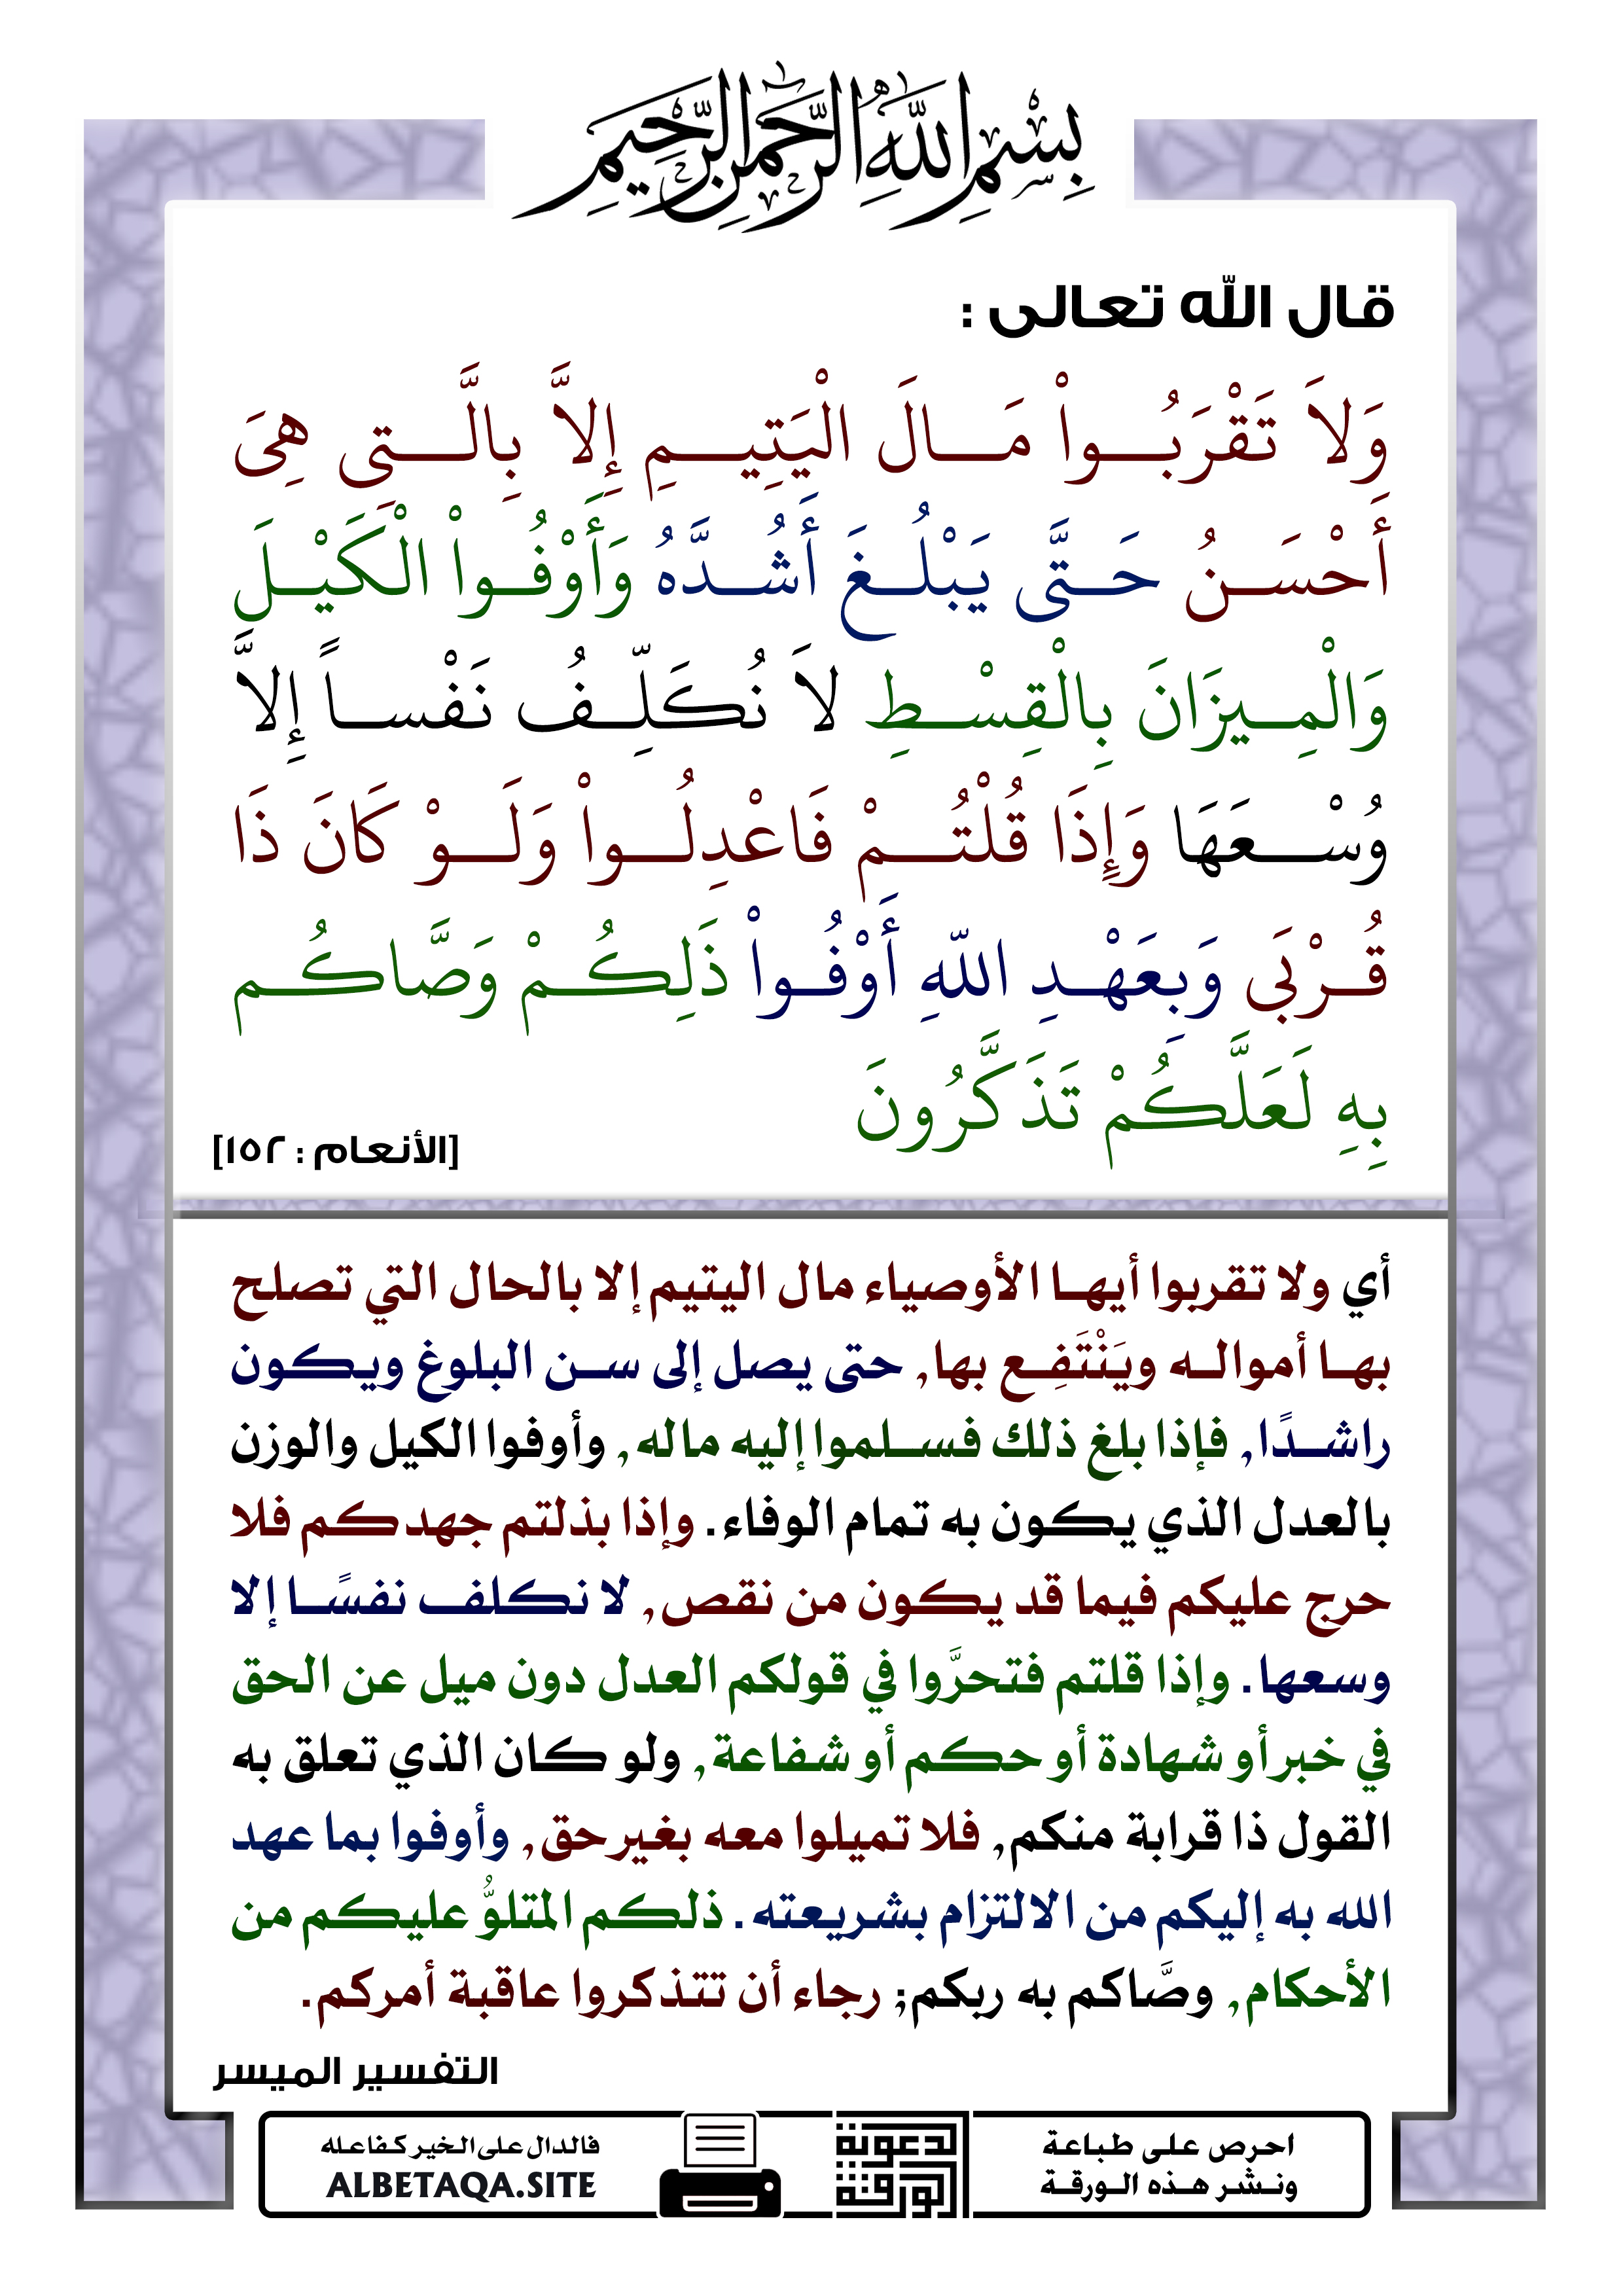 بِسْمِ اللَّهِ الرَّحْمَنِ الرَّحِيمِ
قال الله تعالى :
وَلاَ تَقْرَبُواْ مَالَ الْيَتِيمِ إِلاَّ بِالَّتِي هِيَ
أَحْسَنُ حَتَّى يَبْلُغَ أَشُدَّهُ وَأَوْفُواْ الْكَيْلَ
وَالْمِيزَانَ بِالْقِسْطِ لاَ نُكَلِّفُ نَفْساً إِلاَّ
وُسْعَهَا وَإِذَا قُلْتُمْ فَاعْدِلُواْ وَلَوْ كَانَ ذَا
قُرْبَى وَبِعَهْدِ اللّهِ أَوْفُواْ ذَلِكُمْ وَصَّاكُم
بِهِ لَعَلَّكُمْ تَذَكَّرُونَ
[الأنعام : ١٥٢]
أي ولا تقربوا أيها الأوصياء مال اليتيم إلا بالحال التي تصلح
بها أمواله ويَنْتَفِع بها, حتى يصل إلى سن البلوغ ويكون
راشدًا, فإذا بلغ ذلك فسلموا إليه ماله, وأوفوا الكيل والوزن
بالعدل الذي يكون به تمام الوفاء. وإذا بذلتم جهدكم فلا
حرج عليكم فيما قد يكون من نقص, لا نكلف نفسًا إلا
وسعها. وإذا قلتم فتحرَّوا في قولكم العدل دون ميل عن الحق
في خبر أو شهادة أو حكم أو شفاعة, ولو كان الذي تعلق به
القول ذا قرابة منكم, فلا تميلوا معه بغير حق, وأوفوا بما عهد
الله به إليكم من الالتزام بشريعته. ذلكم المتلوُّ عليكم من
الأحكام, وصَّاكم به ربكم; رجاء أن تتذكروا عاقبة أمركم.
التفسير الميسر
احرص على طباعة
ونشر هذه الورقة
الورقة
الدعوية
فالدال على الخير كفاعله
ALBETAQA.SITE